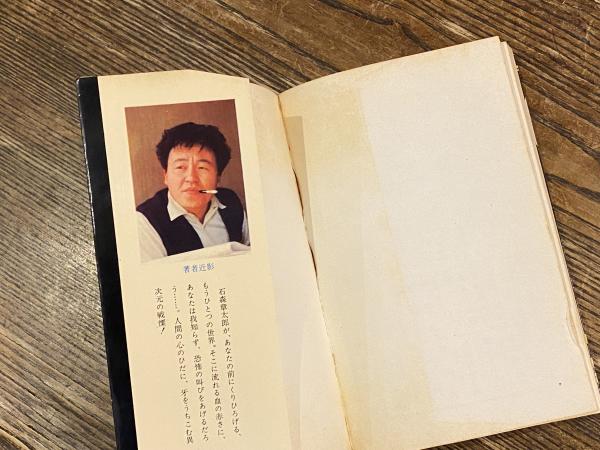 著者近影
石森章太郎が、あなたの前にくりひろげる、
もうひとつの世界。そこに流れる血の赤さに、
あなたは我知らず、恐怖の叫びをあげるだろ
う……。人間の心のひだに、牙をうちこむ異
次元の戦慄！